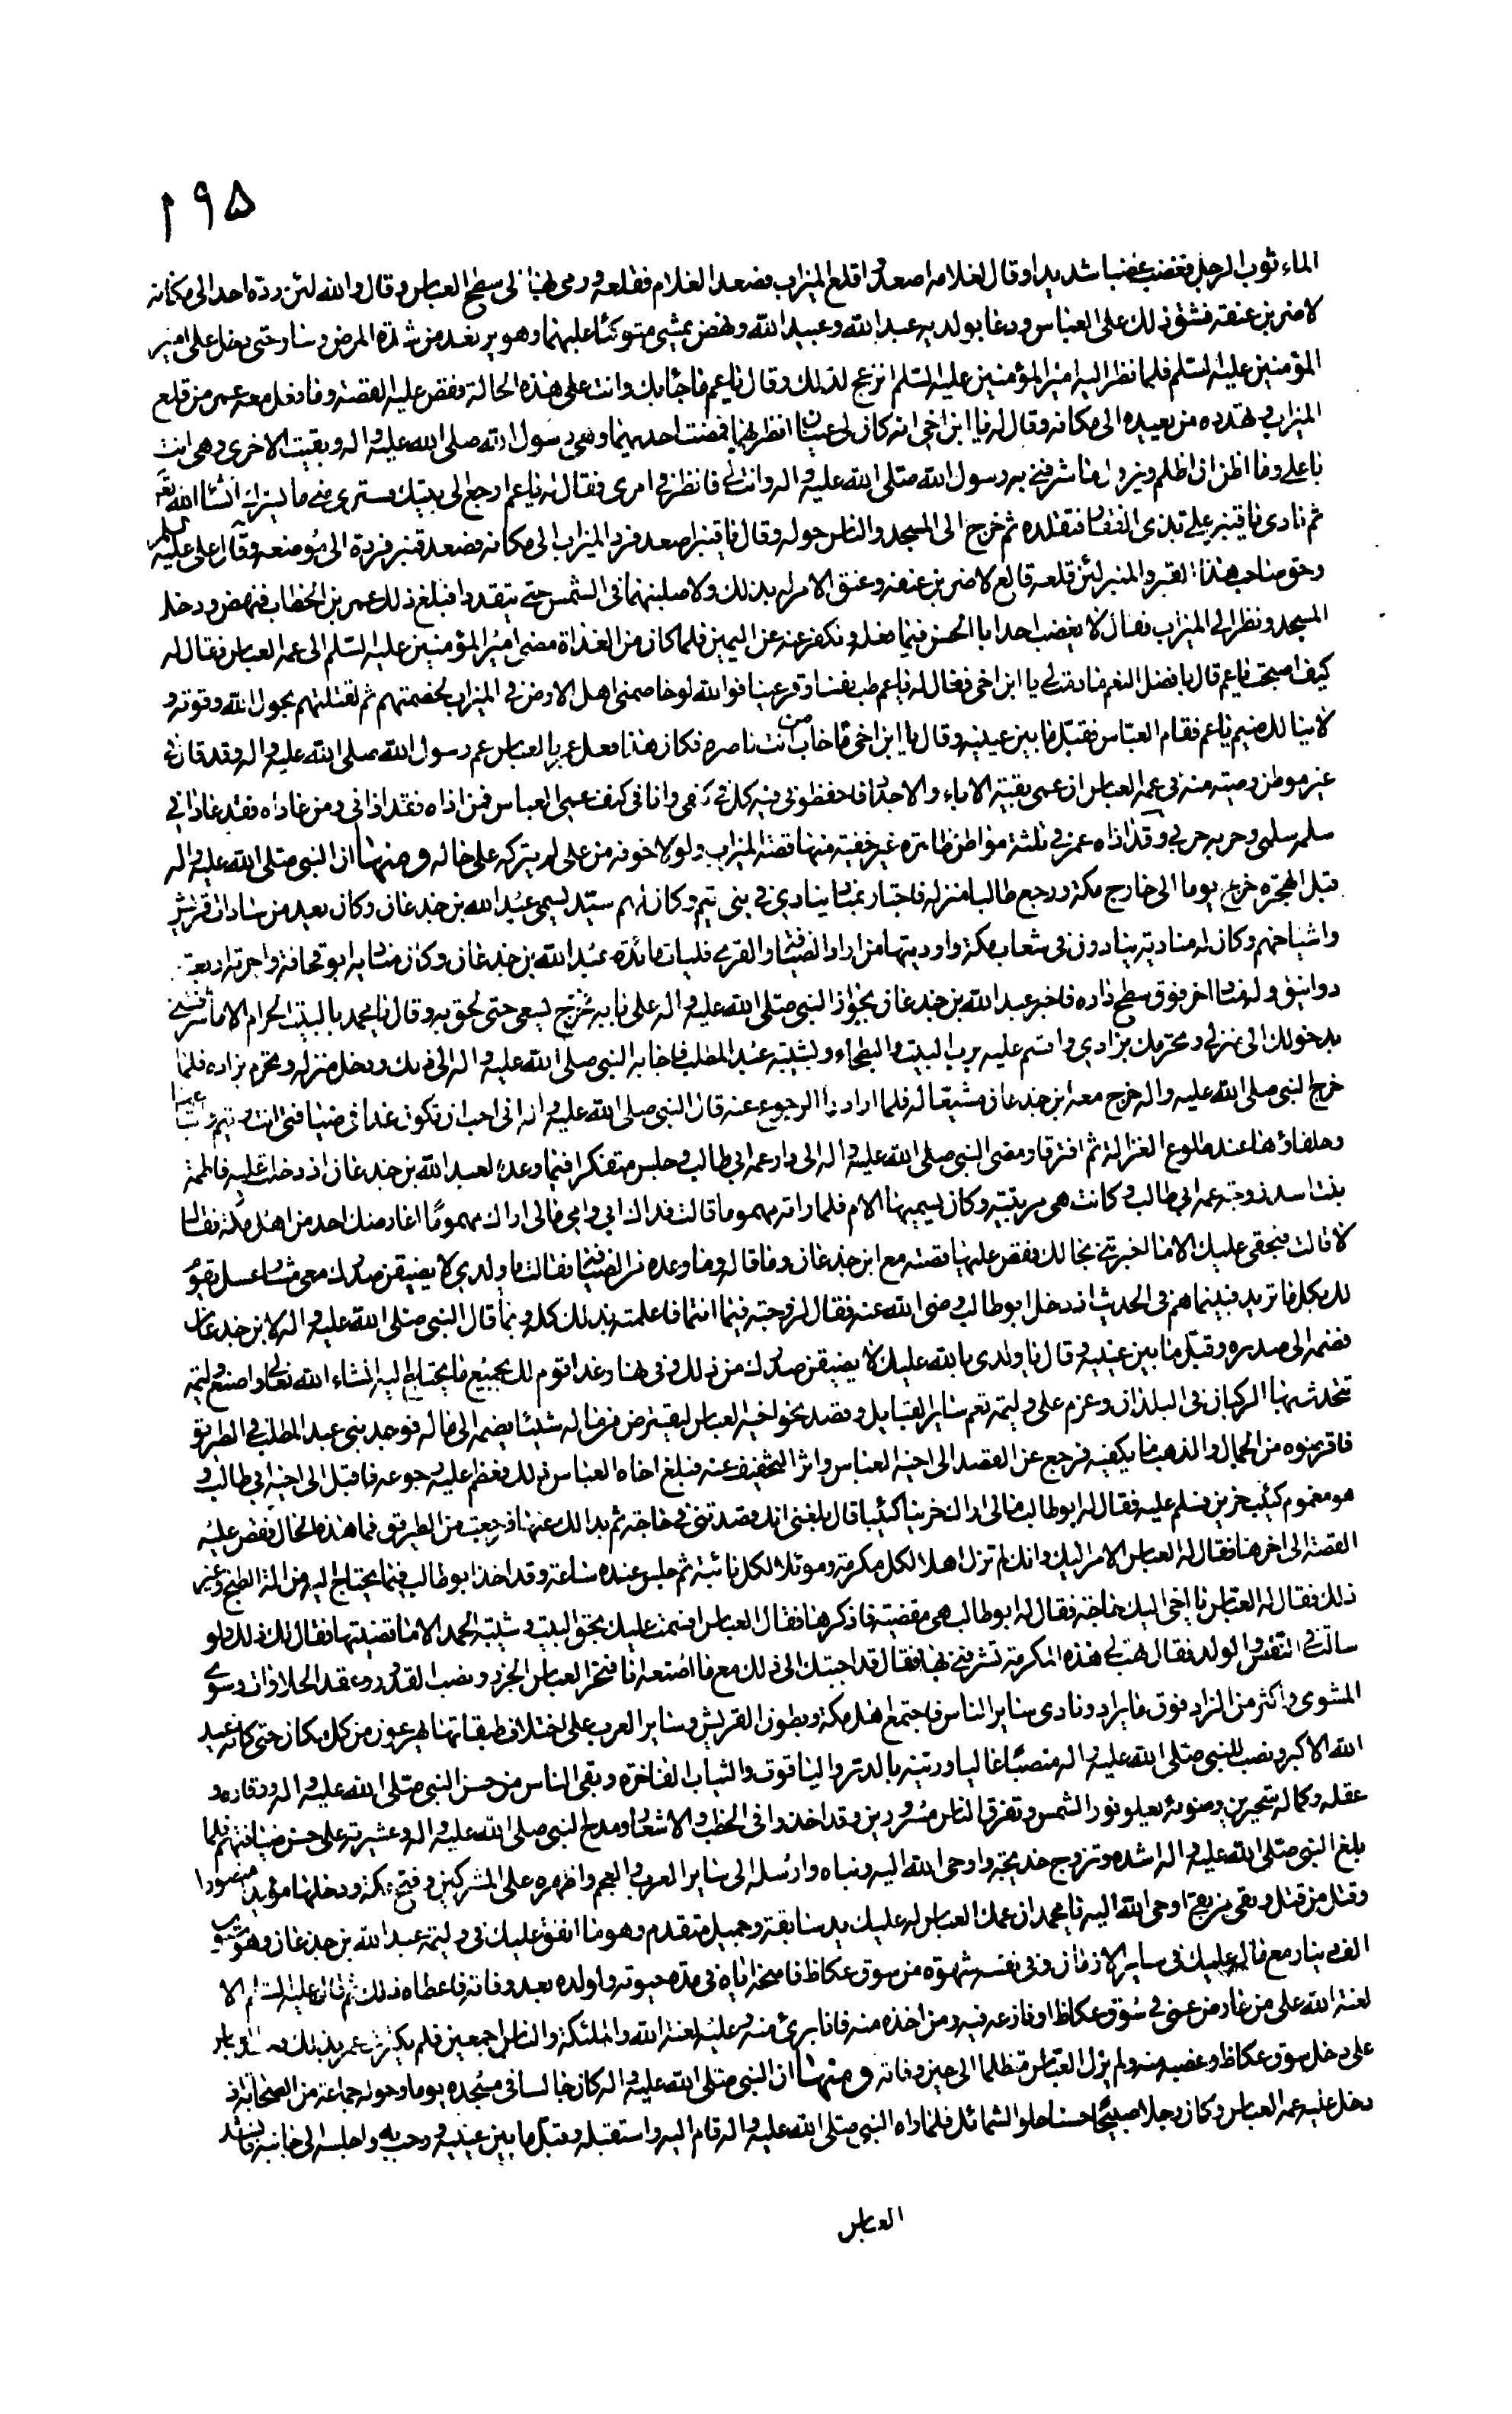 ١٩۵
الماء ثوب الرجل فغضب غضبا شديدا وقال لغلامه اصعد واقلع الميزاب فصعد الغلام فقلعه ورمى به الى سطح العباس وقال والله لئن رده احد الى مكانه
لاضربن عنقه فشق ذلك على العباس ودعا بولديه عبد الله وعبيد الله ونهض يمشي متوكئا عليهما وهو يرتعد من شدة المرض وسار حتى دخل على امير
المؤمنين عليه السلم فلما نظر اليه امير المؤمنين عليه السلم انزعج لذلك وقال يا عم ما جاء بك وانت على هذه الحالة فقص عليه القصة وما فعل معه عمر من قلع
الميزاب وتهدده من يعيده الى مكانه وقال له يا ابن اخي انه كان لي عينان انظر بهما فمضت احديهما وهي رسول الله صلى الله عليه واله وبقيت الاخرى وهي انت
يا علي وما اظن ان اظلم ويزول ما شرفني به رسول الله صلى الله عليه واله وانت لي فانظر في امري فقال له يا عم ارجع الى بيتك فسترى مني ما يسرك ان شاء الله تعالى
ثم نادى يا قنبر علي بذي الفقار فتقلده ثم خرج الى المسجد والناس حوله وقال يا قنبر اصعد فرد الميزاب الى مكانه فصعد قنبر فرده الى موضعه وقال علي عليه السلم
وحق صاحب هذا القبر والمنبر لئن قلعه قالع لاضربن عنقه وعنق الامر له بذلك ولاصلبنهما في الشمس حتى يتقددا فبلغ ذلك عمر بن الخطاب فنهض ودخل
المسجد ونظر الى الميزاب فقال لا يغضب احد ابا الحسن فيما فعل ونكفر عنه عن اليمين فلما كان من الغداة مضى امير المؤمنين عليه السلم الى عمه العباس فقال له
كيف اصبحت يا عم قال بافضل النعم ما دمت لي يا ابن اخي فقال له يا عم طب نفسا وقر عينا فوالله لو خاصمني اهل الارض في الميزاب لخصمتهم ثم لقتلتهم بحول الله وقوته و
لا ينالك ضيم يا عم فقام العباس فقبل ما بين عينيه وقال يا ابن اخي ما خاب من انت ناصره فكان هذا فعل عمر بالعباس عم رسول الله صلى الله عليه واله وقد قال في
غير موطن وصية منه في عمه العباس ان عمي بقية الاباء والاجداد فاحفظوني فيه كل في كنفي وانا في كنف عمي العباس فمن اذاه فقد اذاني ومن عاداه فقد عاداني
سلمه سلمي وحربه حربي وقد اذاه عمر في ثلثة مواطن ظاهرة غير خفية منها قصة الميزاب ولولا خوفه من علي لم يتركه على حاله ومنها ان النبي صلى الله عليه واله
قبل الهجرة خرج يوما الى خارج مكة ورجع طالبا منزله فاجتاز بمناد ينادي في بني تيم وكان لهم سيد يسمى عبد الله بن جدعان وكان يعد من سادات قريش
واشياخهم وكان له منادية ينادون في شعاب مكة واوديتها من اراد الضيافة والقرى فليات مائدة عبد الله بن جدعان وكان مناديه ابو قحافة واجرته اربعة
دوانيق وله مناد اخر فوق سطح داره فاخبر عبد الله بن جدعان بجواز النبي صلى الله عليه واله على بابه فخرج يسعى حتى لحق به وقال يا محمد بالبيت الحرام الا ما شرفتني
بدخولك الى منزلي وتحرمك بزادي واقسم عليه برب البيت والبطحاء وبشيبة عبد المطلب فاجابه النبي صلى الله عليه واله الى ذلك ودخل منزله وتحرم بزاده فلما
خرج النبي صلى الله عليه واله خرج معه ابن جدعان مشيعا له فلما اراد الرجوع عنه قال النبي صلى الله عليه واله اني احب ان تكون غدا في ضيافتي انت وتيم واتباعها
وحلفاؤها عند طلوع الغزالة ثم افترقا ومضى النبي صلى الله عليه واله الى دار عمه ابي طالب وجلس متفكرا فيما وعده لعبد الله بن جدعان اذ دخلت عليه فاطمة
بنت اسد زوجة عمه ابي طالب وكانت هي مربيته وكان يسميها الام فلما راته مهموما قالت فداك ابي وامي مالي اراك مهموما اعارضك احد من اهل مكة فقال
لا قالت فبحقي عليك الا ما اخبرتني بحالك فقص عليها قصته مع ابن جدعان وما قاله وما وعده من الضيافة فقالت يا ولدي لا يضيقن صدرك معي مشار عسل يقوم
لك بكل ما تريد فبينما هم في الحديث اذ دخل ابو طالب رضي الله عنه فقال لزوجته فيما انتما فاعلمته بذلك كله وبما قال النبي صلى الله عليه واله لابن جدعان
فضمه الى صدره وقبل ما بين عينيه وقال يا ولدي بالله عليك لا يضيقن صدرك من ذلك وفي نهار غد اقوم لك بجميع ما يحتاج اليه انشاء الله تعالى واصنع وليمة
تتحدث بها الركبان في البلدان وعزم على وليمة تعم سائر القبايل وقصد نحو اخيه العباس ليقترض من ماله شيئا يضمه الى ماله فوجد بني عبد المطلب في الطريق
فاقرضوه من الجمال والذهب ما يكفيه فرجع عن القصد الى اخيه العباس واثر التخفيف عنه فبلغ اخاه العباس ذلك فعظم عليه رجوعه فاقبل الى اخيه ابي طالب و
هو مغموم كئيب حزين فسلم عليه فقال له ابو طالب مالي اراك حزينا كئيبا قال بلغني انك قصدتني في حاجة ثم بدا لك عنها فرجعت من الطريق فما هذه الحال فقص عليه
القصة الى اخرها فقال له العباس الامر اليك وانك لم تزل اهلا لكل مكرمة وموئلا لكل نائبة ثم جلس عنده ساعة وقد اخذ ابو طالب فيما يحتاج اليه من الة الطبخ وغير
ذلك فقال له العباس يا اخي لي اليك حاجة فقال له ابو طالب هي مقضية فاذكرها فقال العباس اقسمت عليك بحق البيت وشيبة الحمد الا ما قضيتها فقال لك ذلك ولو
سالت في النفس والولد فقال تهب لي هذه المكرمة تشرفني بها فقال قد اجبتك الى ذلك مع ما اصنعه انا فنحر العباس الجزر ونصب القدور وعقد الحلاوات وشوى
المشوي واكثر من الزاد فوق ما يراد ونادى سائر الناس فاجتمع اهل مكة وبطون القريش وسائر العرب على اختلاف طبقاتها يهرعون من كل مكان حتى كانه عيد
الله الاكبر ونصب للنبي صلى الله عليه واله منصبا عاليا وزينه بالدر والياقوت والثياب الفاخرة وبقي الناس من حسن النبي صلى الله عليه واله ووقاره و
عقله وكماله متحيرين وضوئه يعلو نور الشمس وتفرق الناس مسرورين وقد اخذوا في الخطب والاشعار ومدح النبي صلى الله عليه واله وعشيرته على حسن ضيافتهم فلما
بلغ النبي صلى الله عليه واله اشده وتزوج خديجة واوحى الله اليه ونباه وارسله الى سائر العرب والعجم واظهره على المشركين وفتح مكة ودخلها مؤيدا منصورا
وقتل من قتل وبقي من بقي اوحى الله اليه يا محمد ان عمك العباس له عليك يد سابقة وجميل متقدم وهو ما انفق عليك في وليمة عبد الله بن جدعان وهو ستون
الف دينار مع ماله عليك في سائر الازمان وفي نفسه شهوة من سوق عكاظ فامنحه اياه في مدة حيوته ولولده بعد وفاته فاعطاه ذلك ثم قال عليه السلم الا
لعنة الله على من عارض عمي في سوق عكاظ او نازعه فيه ومن اخذه منه فانا بريء منه وعليه لعنة الله والملئكة والناس اجمعين فلم يكترث عمر بذلك وحسد العباس
على دخل سوق عكاظ وغصبه منه ولم يزل العباس متظلما الى حين وفاته ومنها ان النبي صلى الله عليه واله كان جالسا في مسجده يوما وحوله جماعة من الصحابة اذ
دخل عليه عمه العباس وكان رجلا صبيحا حسنا حلو الشمائل فلما راه النبي صلى الله عليه واله قام اليه واستقبله وقبل ما بين عينيه ورحب به واجلسه الى جانبه فانشد
العباس